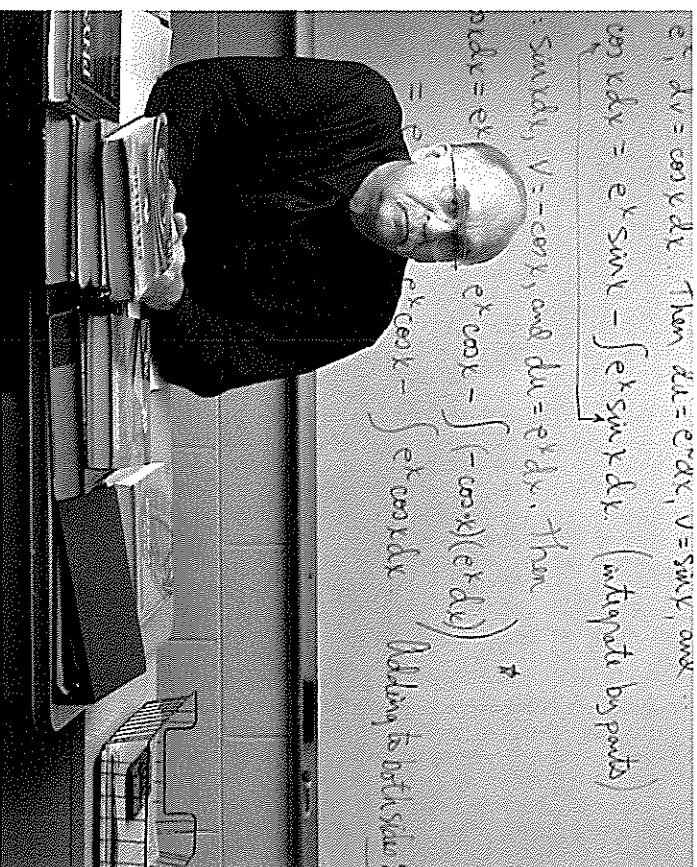 eˣ, dv = cos x dx. Then du = eˣ dx, v = sin x, and
cos x dx = eˣ sin x - ∫ eˣ sin x dx. (integrate by parts)
: sin x dx, v = -cos x, and du = eˣ dx. Then
x dx = eˣ eˣ cos x - ∫ (-cos x)(eˣ dx)) ☆
= e eˣ cos x - ∫ eˣ cos x dx Adding to both sides